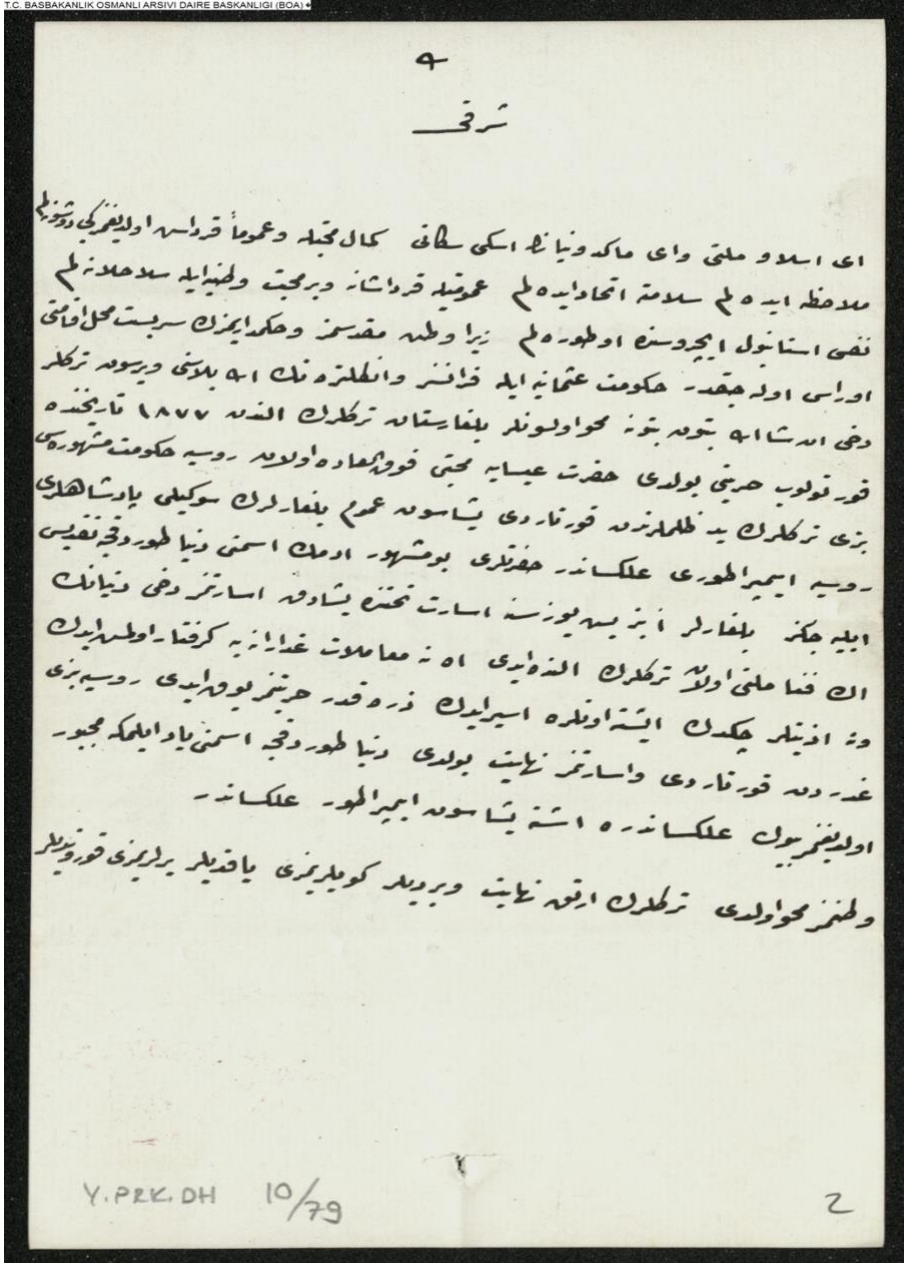 T.C. BASBAKANLIK OSMANLI ARSIVI DAIRE BASKANLIGI (BOA)
شرقی
ای اسلاو ملتی وای ماکدونیانڭ اسكی سكانی كمال محبتله وعموماً قرداش اولدیغمز كبی دوشونه لم
ملاحظه ایده لم سلامته اتحاد ایده لم عمومیتله قرداشانه وبر محبت وطنیه ایله سلاحلانه لم
نفس استانبول ایچروسنده اوطوره لم زیرا وطن مقدسمز وحكمدار يمزك سربست محل اقامتی
اوراسی اوله جقدر حكومت عثمانیه ایله فرانسز وانكلتره نك الله بلاسنی ویرسون تركلر
دخی ان شا الله بتون بتون محو اولسونلر بلغارستان تركلرك الندن ١٨٧٧ تاریخنده
قورتولوب حریتی بولدی حضرت عیسایه محبتی فوق العاده اولان روسیه حكومت مشهوره سی
بزی تركلرك ید ظلملرندن قورتاردی یشاسون عموم بلغارلرك سوكیلی پادشاهلری
روسیه ایمپراطوری علكساندر حضرتلری بو مشهور ادمك اسمنی دنیا طوردقجه تقدیس
ایلیه جكز بلغارلر بز بش یوز سنه اسارت تحتنده یشادق اسارتمز دخی دنیانك
اڭ فنا ملتی اولان تركلرك النده ایدی اه نه معاملات غدارانه یه كرفتار اولمش ایدك
ونه اذیتلر چكدك ایشته اونلره اسیر ایدك ذره قدر حریتمز یوق ایدی روسیه بزی
غدردن قورتاردی واسارتمز نهایت بولدی دنیا طوردقجه اسمنی یاد ایلمكه مجبور
اولدیغمز بیوك علكساندره اشته یشاسون ایمپراطور علكساندر
وطنمز محو اولدی تركلرك ارتق نهایت ویردیلر كویلریمزی یاقدیلر یرلریمزی قوروتدیلر
Y.PRK.DH 10/79
2